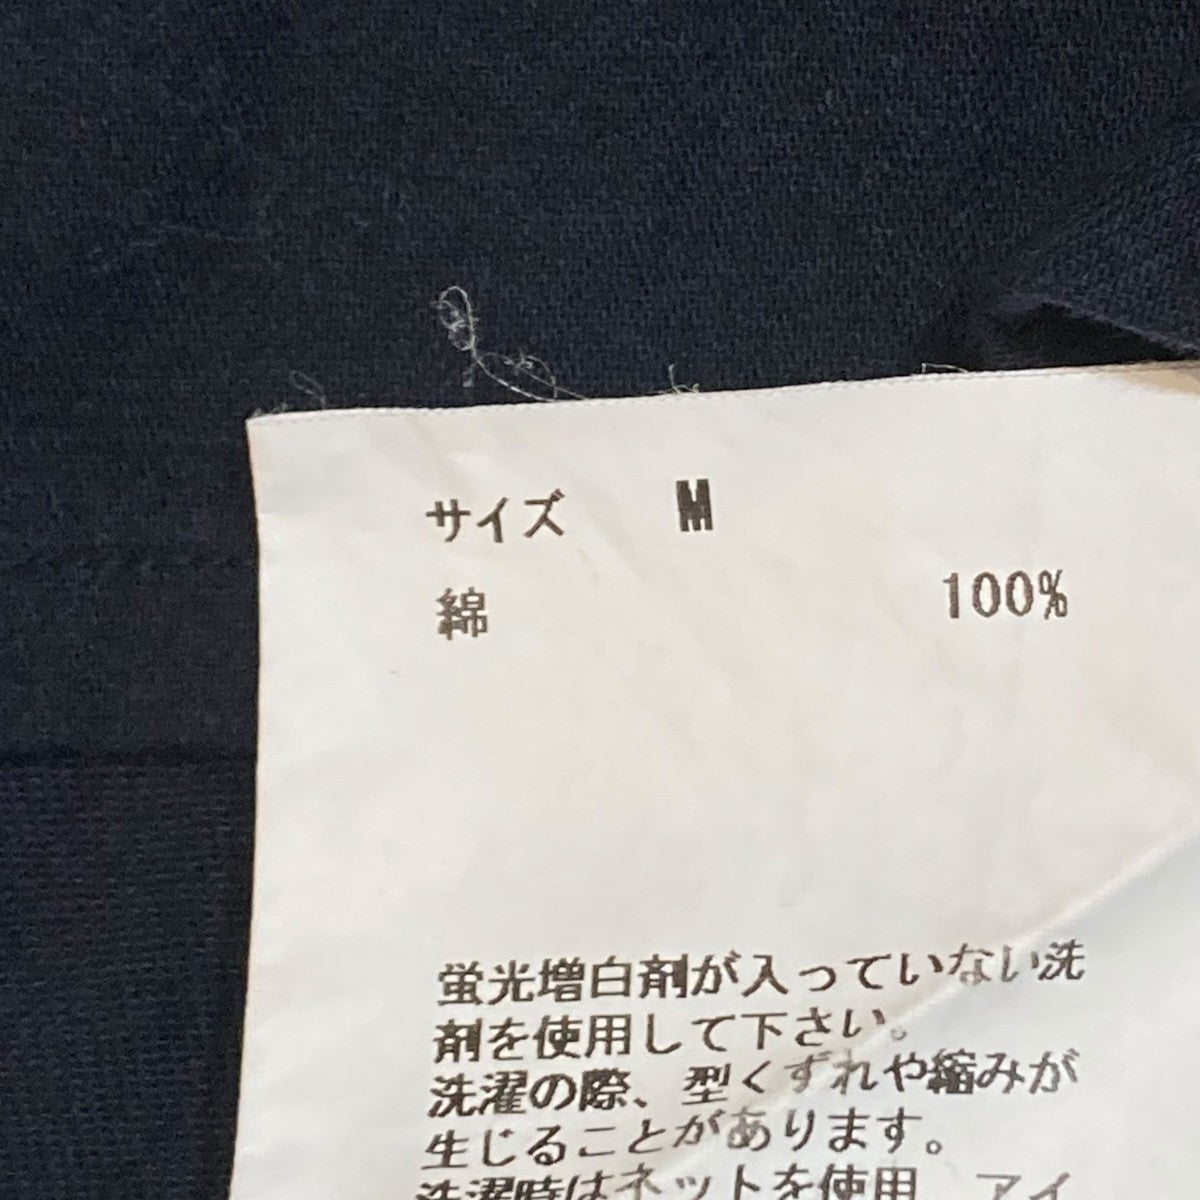 サイズ M
綿 100%
蛍光増白剤が入っていない洗
剤を使用して下さい。
洗濯の際、型くずれや縮みが
生じることがあります。
洗濯時はネットを使用、アイ